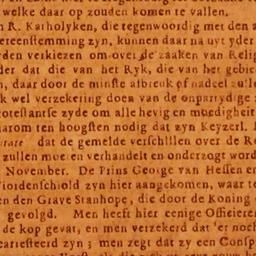 welke daar op zouden komen te vallen.
n R. Katholyken, die tegenwoordig met den a
ereenstemming zyn, kunnen daar na uyt yder
den verkiezen om over de zaaken van Relig
der dat die van het Ryk, die van het gebie
n, daar door de minste afbreuk of nadeel zulle
k wel verzekering doen van de onpartydige z
otestantse zyde om alle hevig en moedigheit
aarom ten hoogsten nodig dat zyn Keyzerl.
trate dat de gemelde verschillen over de Re
zullen moeten verhandelt en onderzogt word
November. De Prins George van Hessen en
iordenschiold zyn hier aangekomen, waar te
en den Grave Stanhope, die door de Koning
gevolgd. Men heeft hier eenige Officieren
de kop gevat, en men verzekerd dat 'er noch
earresteerd zyn; men zegt dat zy een Consp